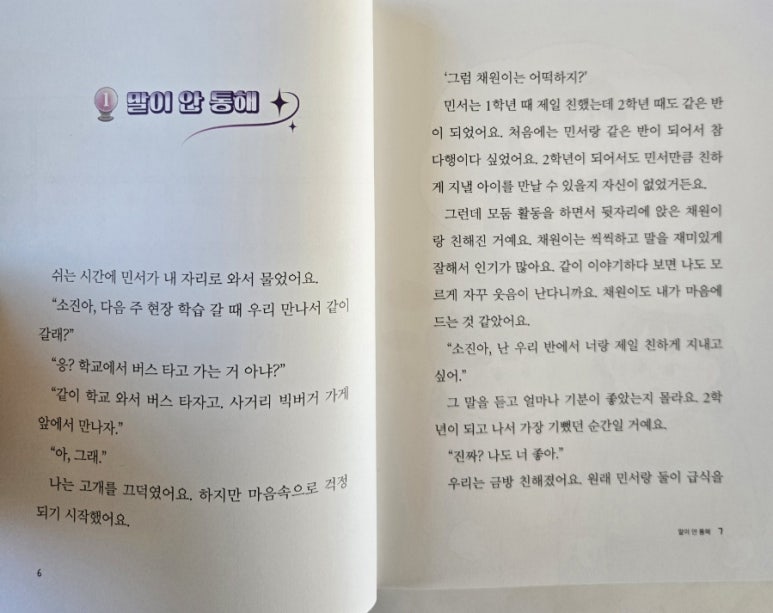 1 말이 안 통해
쉬는 시간에 민서가 내 자리로 와서 물었어요.
“소진아, 다음 주 현장 학습 갈 때 우리 만나서 같이
갈래?”
“응? 학교에서 버스 타고 가는 거 아냐?”
“같이 학교 와서 버스 타자고. 사거리 빅버거 가게
앞에서 만나자.”
“아, 그래.”
나는 고개를 끄덕였어요. 하지만 마음속으로 걱정
되기 시작했어요.
6
‘그럼 채원이는 어떡하지?’
민서는 1학년 때 제일 친했는데 2학년 때도 같은 반
이 되었어요. 처음에는 민서랑 같은 반이 되어서 참
다행이다 싶었어요. 2학년이 되어서도 민서만큼 친하
게 지낼 아이를 만날 수 있을지 자신이 없었거든요.
그런데 모둠 활동을 하면서 뒷자리에 앉은 채원이
랑 친해진 거예요. 채원이는 씩씩하고 말을 재미있게
잘해서 인기가 많아요. 같이 이야기하다 보면 나도 모
르게 자꾸 웃음이 난다니까요. 채원이도 내가 마음에
드는 것 같았어요.
“소진아, 난 우리 반에서 너랑 제일 친하게 지내고
싶어.”
그 말을 듣고 얼마나 기분이 좋았는지 몰라요. 2학
년이 되고 나서 가장 기뻤던 순간일 거예요.
“진짜? 나도 너 좋아.”
우리는 금방 친해졌어요. 원래 민서랑 둘이 급식을
말이 안 통해 7